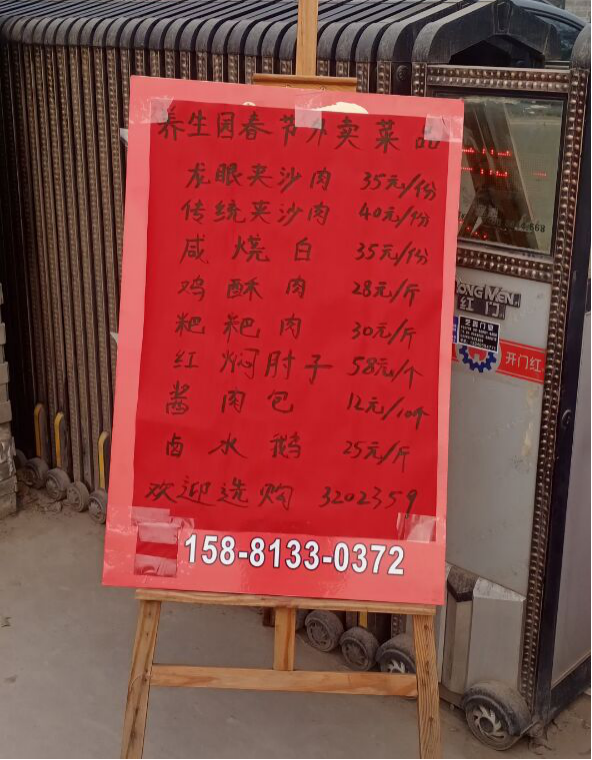 养生园春节外卖菜品
龙眼夹沙肉 35元/份
传统夹沙肉 40元/份
咸烧白 35元/份
鸡酥肉 28元/斤
粑粑肉 30元/斤
红焖肘子 58元/个
酱肉包 12元/10个
卤水鹅 25元/斤
欢迎选购 3202359
158-8133-0372
红门
开门红